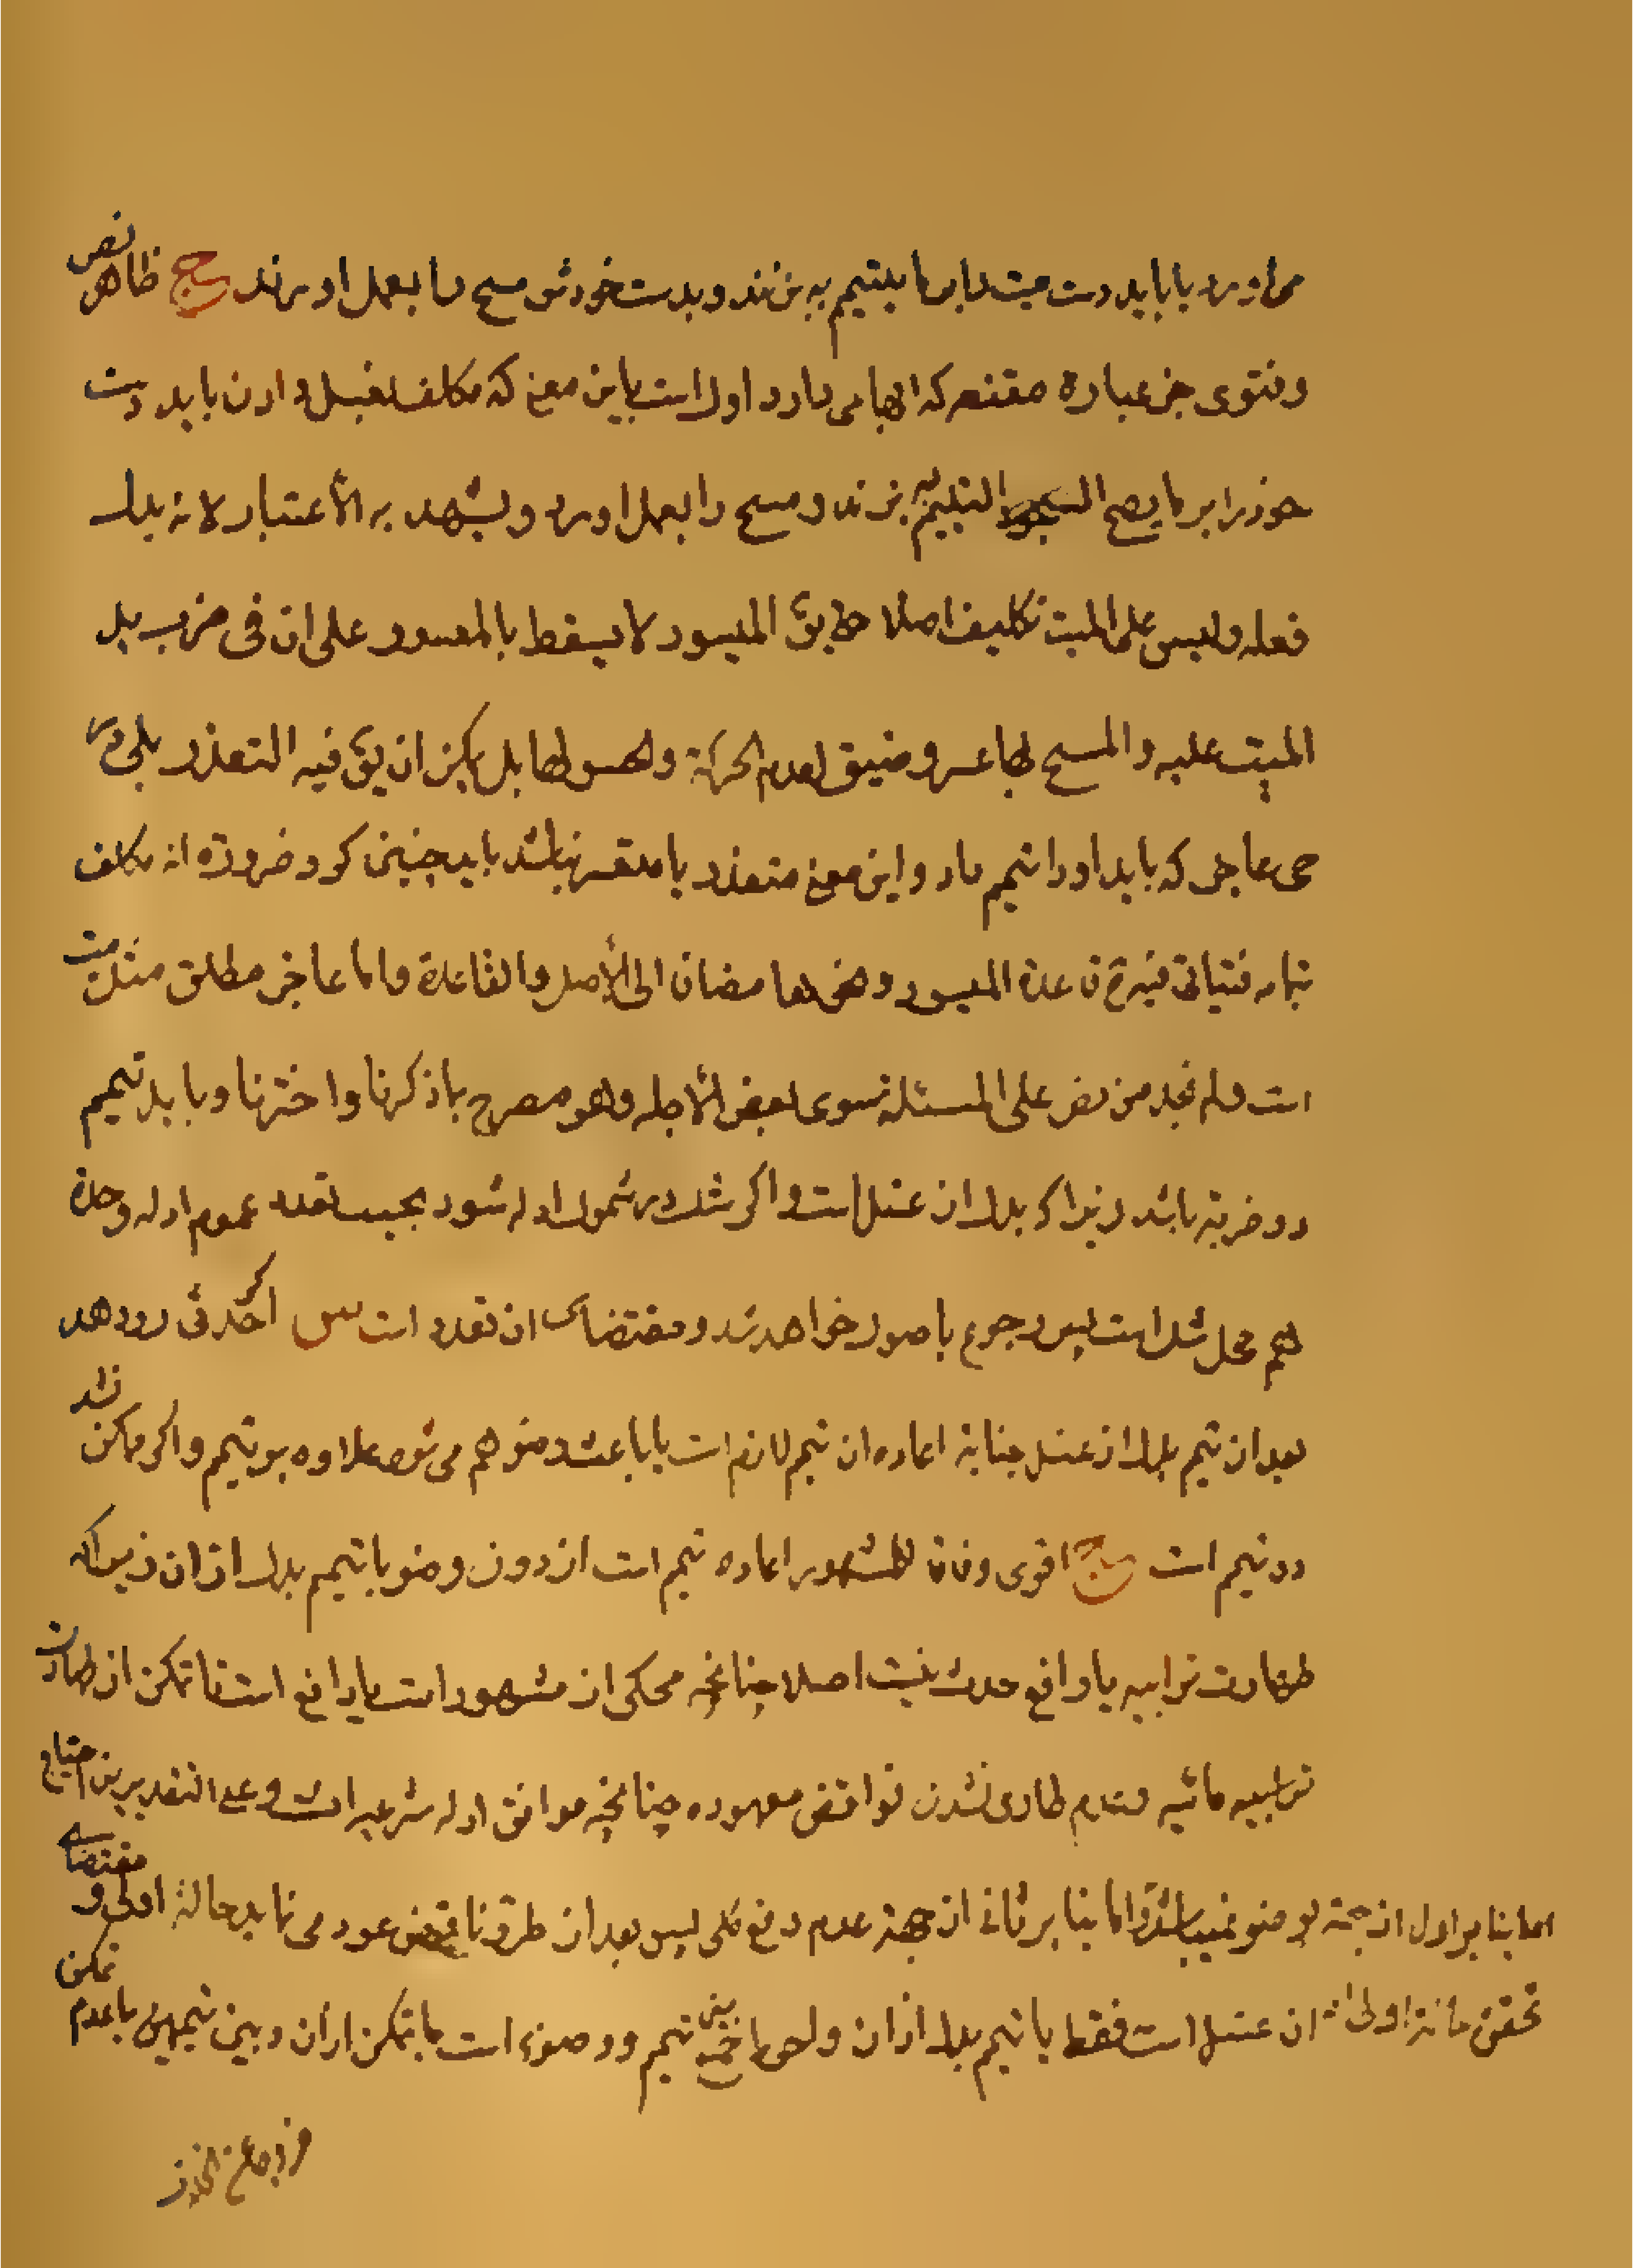 می‌آورد یا باید دست میت را بر ما یتیمم به بزنند و بدست خودش مسح را بعمل اورند ج ظاهر نص
و فتوی جز عبارة مقنعه که ابهامی دارد اول است باین معنی که مکلف بغسل دادن باید دست
خود را بر ما یصح التیمم به بزند و مسح را بعمل اورد و یشهد به الأعتبار لانه بدل
فعله و لیس علی المیت تکلیف اصلا حتی یق المیسور لا یسقط بالمعسور علی ان فی ضرب ید
المیت علیه و المسح بها عسر و ضیق لعدم الحرکة و بل یمکن ان یق فیه التعذر بلی در
حی عاجز که باید او را تیمم داد و این معنی متعذر یا متعسر نباشد باید چنین کرد ضرورة انه مکلف
بتمامه فیتأتی فیه ح قاعدة المیسور و نحوها مضافا الی الأصل و القاعدة و اما عاجز مطلق مثل میت
است و لم نجد من نص علی المسئلة سوی بعض الأجله و هو مصرح بما ذکرنا و اخترنا و باید تیمم
دو ضربة باشد زیرا که بدل از غسل است و اگر شک در شمول ادله شود بحیث عموم ادله وحدة
هم محل شک است پس رجوع باصول خواهد شد و مقتضای ان تعدد است س اگر حدثی رو دهد
بعد از تیمم بدل از غسل جنابة اعاده ان تیمم لازم است یا باعث وضو هم می شود علاوه بر تیمم و اگر ممکن نشد
دو تیمم است ج اقوی وفاقا للمشهور اعاده تیمم است از دون وضو یا تیمم بدل از ان زیرا که
طهارت ترابیه یا رافع حدث نیست اصلا چنانچه محکی از مشهور است یا رافع است تا تمکن از طهارت
مائیه و عدم طاری نشدن نواقض معهوده چنانچه موافق ادله شرعیه است و علی التقدیرین احتیاج
اما بنا بر اول از جهة بوضو نمیباشد و اما بنا بر ثانی از جهة عدم رفع کلی پس بعد از طرو ناقض عود می نماید حالة اولی و مقتضای
تحقق حالة اولی ان غسل است فقط یا تیمم بدل از ان و احوط جمع بین تیمم و وضوء است با تمکن از ان و بین تیممین با عدم تمکن